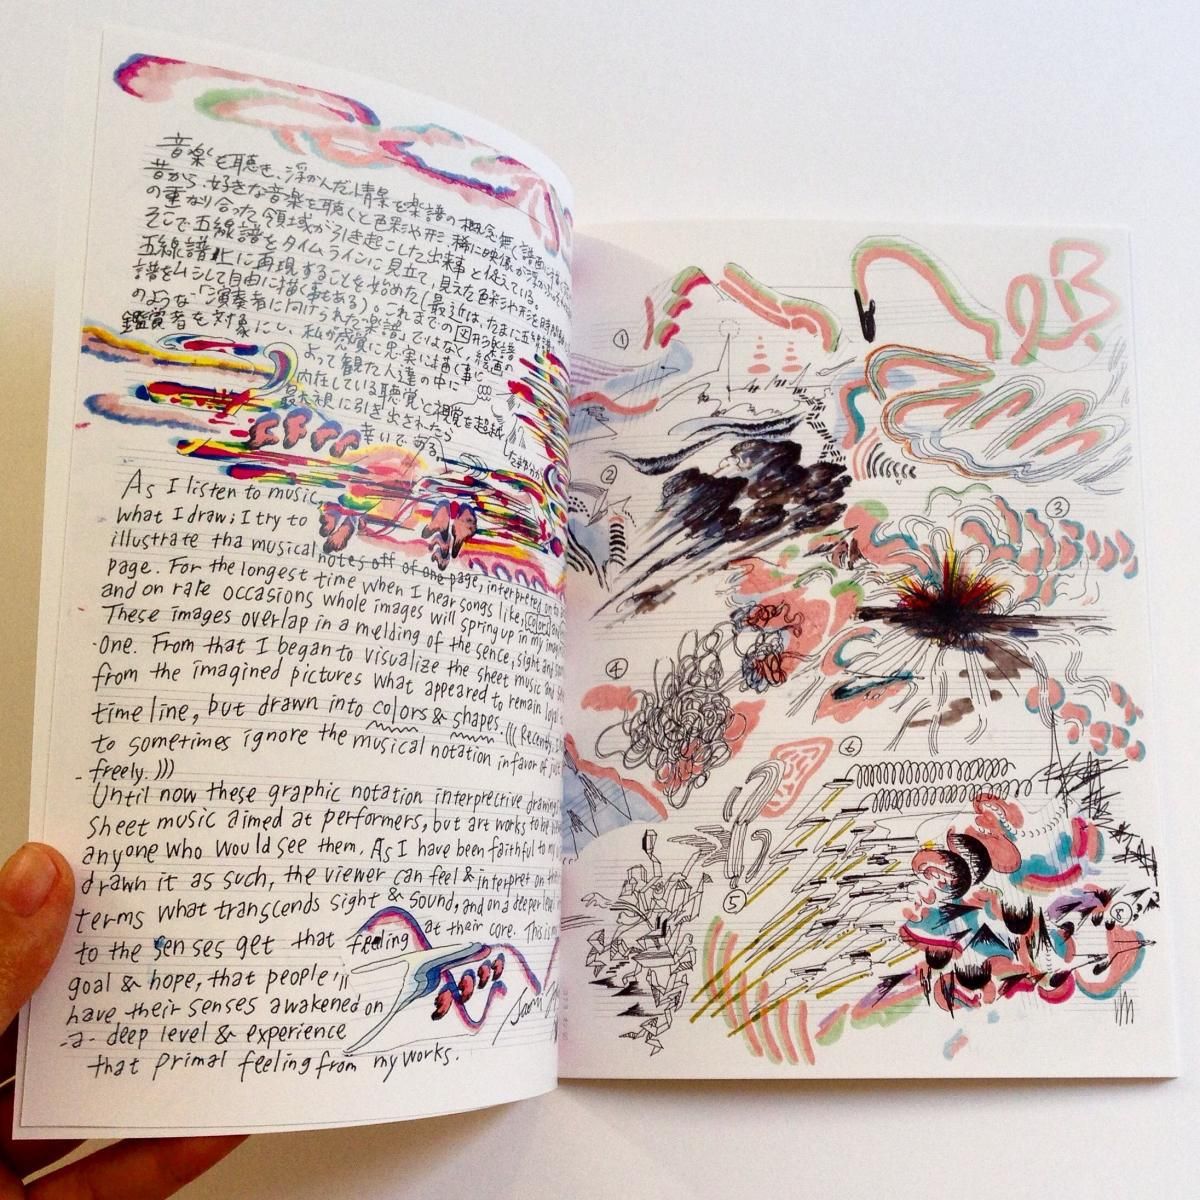 音楽を聴き、浮かんだ情景を楽譜の概念無く譜面に描く
昔から、好きな音楽を聴くと色彩や形、稀に映像が浮かぶ
の重なり合った領域が引き起こした出来事と捉えている。
そこで五線譜をタイムラインに見立て、見えた色彩や形を時間軸
五線譜上に再現することを始めた(最近は、たまに五線譜
譜をムシして自由に描く事もある)。これまでの図形楽譜
のような「演奏者に向けられた楽譜」ではなく、絵画の
鑑賞者を対象にし、私が感覚に忠実に描く事に
よって観た人達の中に
内在している聴覚と視覚を超越
した部分が
最大限に引き出されたら
幸いである。
As I listen to music,
what I draw; I try to
illustrate tha musical notes off of one page, interpreted on to
page. For the longest time when I hear songs I like, colors
and on rare occasions whole images will spring up in my
These images overlap in a melding of the sence, sight and
one. From that I began to visualize the sheet music and
from the imagined pictures what appeared to remain loyal
time line, but drawn into colors & shapes. ((( Recently, I
to sometimes ignore the musical notation in favor of just
freely. )))
Until now these graphic notation interprective drawing
sheet music aimed at performers, but art works to be
anyone who would see them. As I have been faithful to my
drawn it as such, the viewer can feel & interpret on their
terms what transcends sight & sound, and on a deeper level
to the senses get that feeling at their core. This is my
goal & hope, that people'll
have their senses awakened on
-a- deep level & experience
that primal feeling from my works.
①
②
③
④
⑤
⑥
⑧